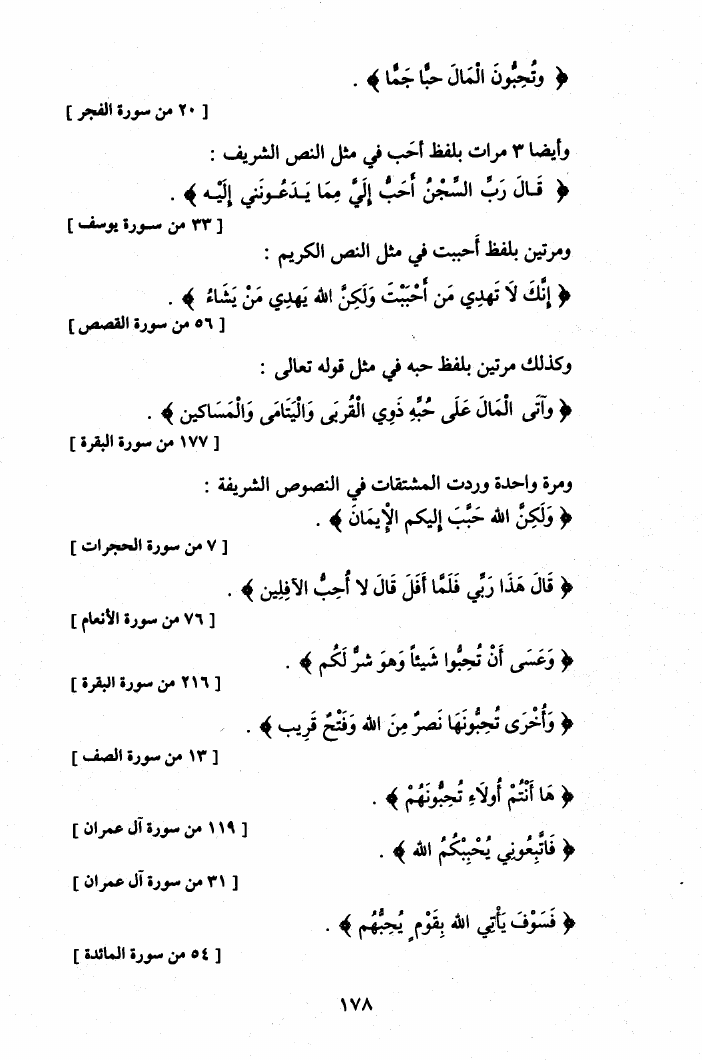 ﴿ وتُحِبُّونَ الْمَالَ حبًّا جَمًّا ﴾ .
[ ٢٠ من سورة الفجر ]
وأيضا ٣ مرات بلفظ أحَب في مثل النص الشريف :
﴿ قَـالَ رَبِّ السِّجْنُ أَحَبُّ إِلَيَّ مِمَا يَـدَعُـونَني إِلَيْـه ﴾ .
[ ٣٣ من سـورة يوسف ]
ومرتين بلفظ أَحببت في مثل النص الكريم :
﴿ إِنَّكَ لَا تَهدِي مَن أَحْبَبْتَ وَلَكِنَّ الله يَهدِي مَنْ يَشَاءُ ﴾ .
[ ٥٦ من سورة القصص ]
وكذلك مرتين بلفظ حبه في مثل قوله تعالى :
﴿ وآتَى الْمَالَ عَلَى حُبِّهِ ذَوِي الْقُربَى وَالْيَتَامَى وَالْمَسَاكين ﴾ .
[ ١٧٧ من سورة البقرة ]
ومرة واحدة وردت المشتقات في النصوص الشريفة :
﴿ وَلَكِنَّ الله حَبَّبَ إليكم الإِيمَانَ ﴾ .
[ ٧ من سورة الحجرات ]
﴿ قَالَ هَذَا رَبِّي فَلَمَّا أَفَلَ قَالَ لا أُحِبُّ الآفِلِين ﴾ .
[ ٧٦ من سورة الأنعام ]
﴿ وَعَسَى أَنْ تُحِبُّوا شَيئاً وَهوَ شرٌّ لَكُم ﴾ .
[ ٢١٦ من سورة البقرة ]
﴿ وَأُخْرَى تُحِبُّونَهَا نَصرٌ مِنَ الله وَفَتْحٌ قَرِيب ﴾ .
[ ١٣ من سورة الصف ]
﴿ هَا أَنْتُمْ أُولَاءِ تُحِبُّونَهُمْ ﴾ .
[ ١١٩ من سورة آل عمران ]
﴿ فَاتَّبِعُونِي يُحْبِبْكُمُ الله ﴾ .
[ ٣١ من سورة آل عمران ]
﴿ فَسَوْفَ يَأْتِي الله بِقَوْمٍ يُحِبُّهُم ﴾ .
[ ٥٤ من سورة المائدة ]
١٧٨